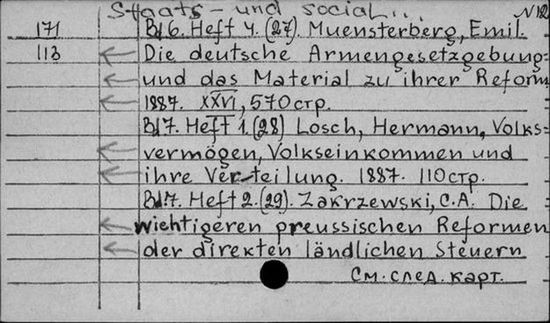 Staats- und social... N12
171 Bd 6. Heft 4. (27). Muensterberg, Emil.
113 Die deutsche Armengesetzgebung
und das Material zu ihrer Reform
1887. XXVI, 570 стр.
Bd 7. Heft 1. (28) Losch, Hermann, Volks-
vermögen, Volkseinkommen und
ihre Verteilung. 1887. 110 стр.
Bd 7. Heft 2. (29). Zakrzewski, C.A. Die
wichtigeren preussischen Reformen
der direkten ländlichen Steuern
См. след. карт.